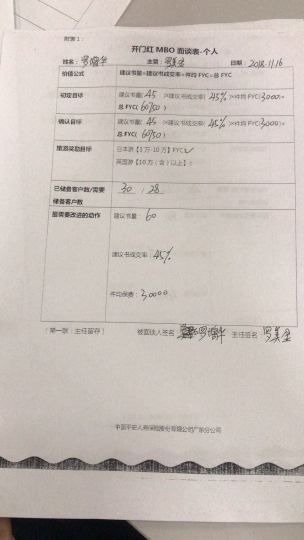 附表1：
开门红 MBO 面谈表-个人
姓名：罗 华 主管：罗 日期：2018.11.16
价值公式 建议书量×建议书成交率×件均 FYC=总 FYC
初定目标 建议书量( 45 )×建议书成交率( 45% )×件均 FYC( 3000 )=
总 FYC( 60750 )
确认目标 建议书量( 45 )×建议书成交率( 45% )×件均 FYC( 3000 )=
总 FYC( 60750 )
旅游奖励目标 日本游【3万-10万】FYC ✓
英国游【10万（含）以上】：
已储备客户数/需要 30 / 28
储备客户数
最需要改进的动作 建议书量：60
建议书成交率：45%
件均保费：30000
[ 第一联：主任留存 ] 被面谈人签名 罗 华 主任签名：罗
中国平安人寿保险股份有限公司广东分公司